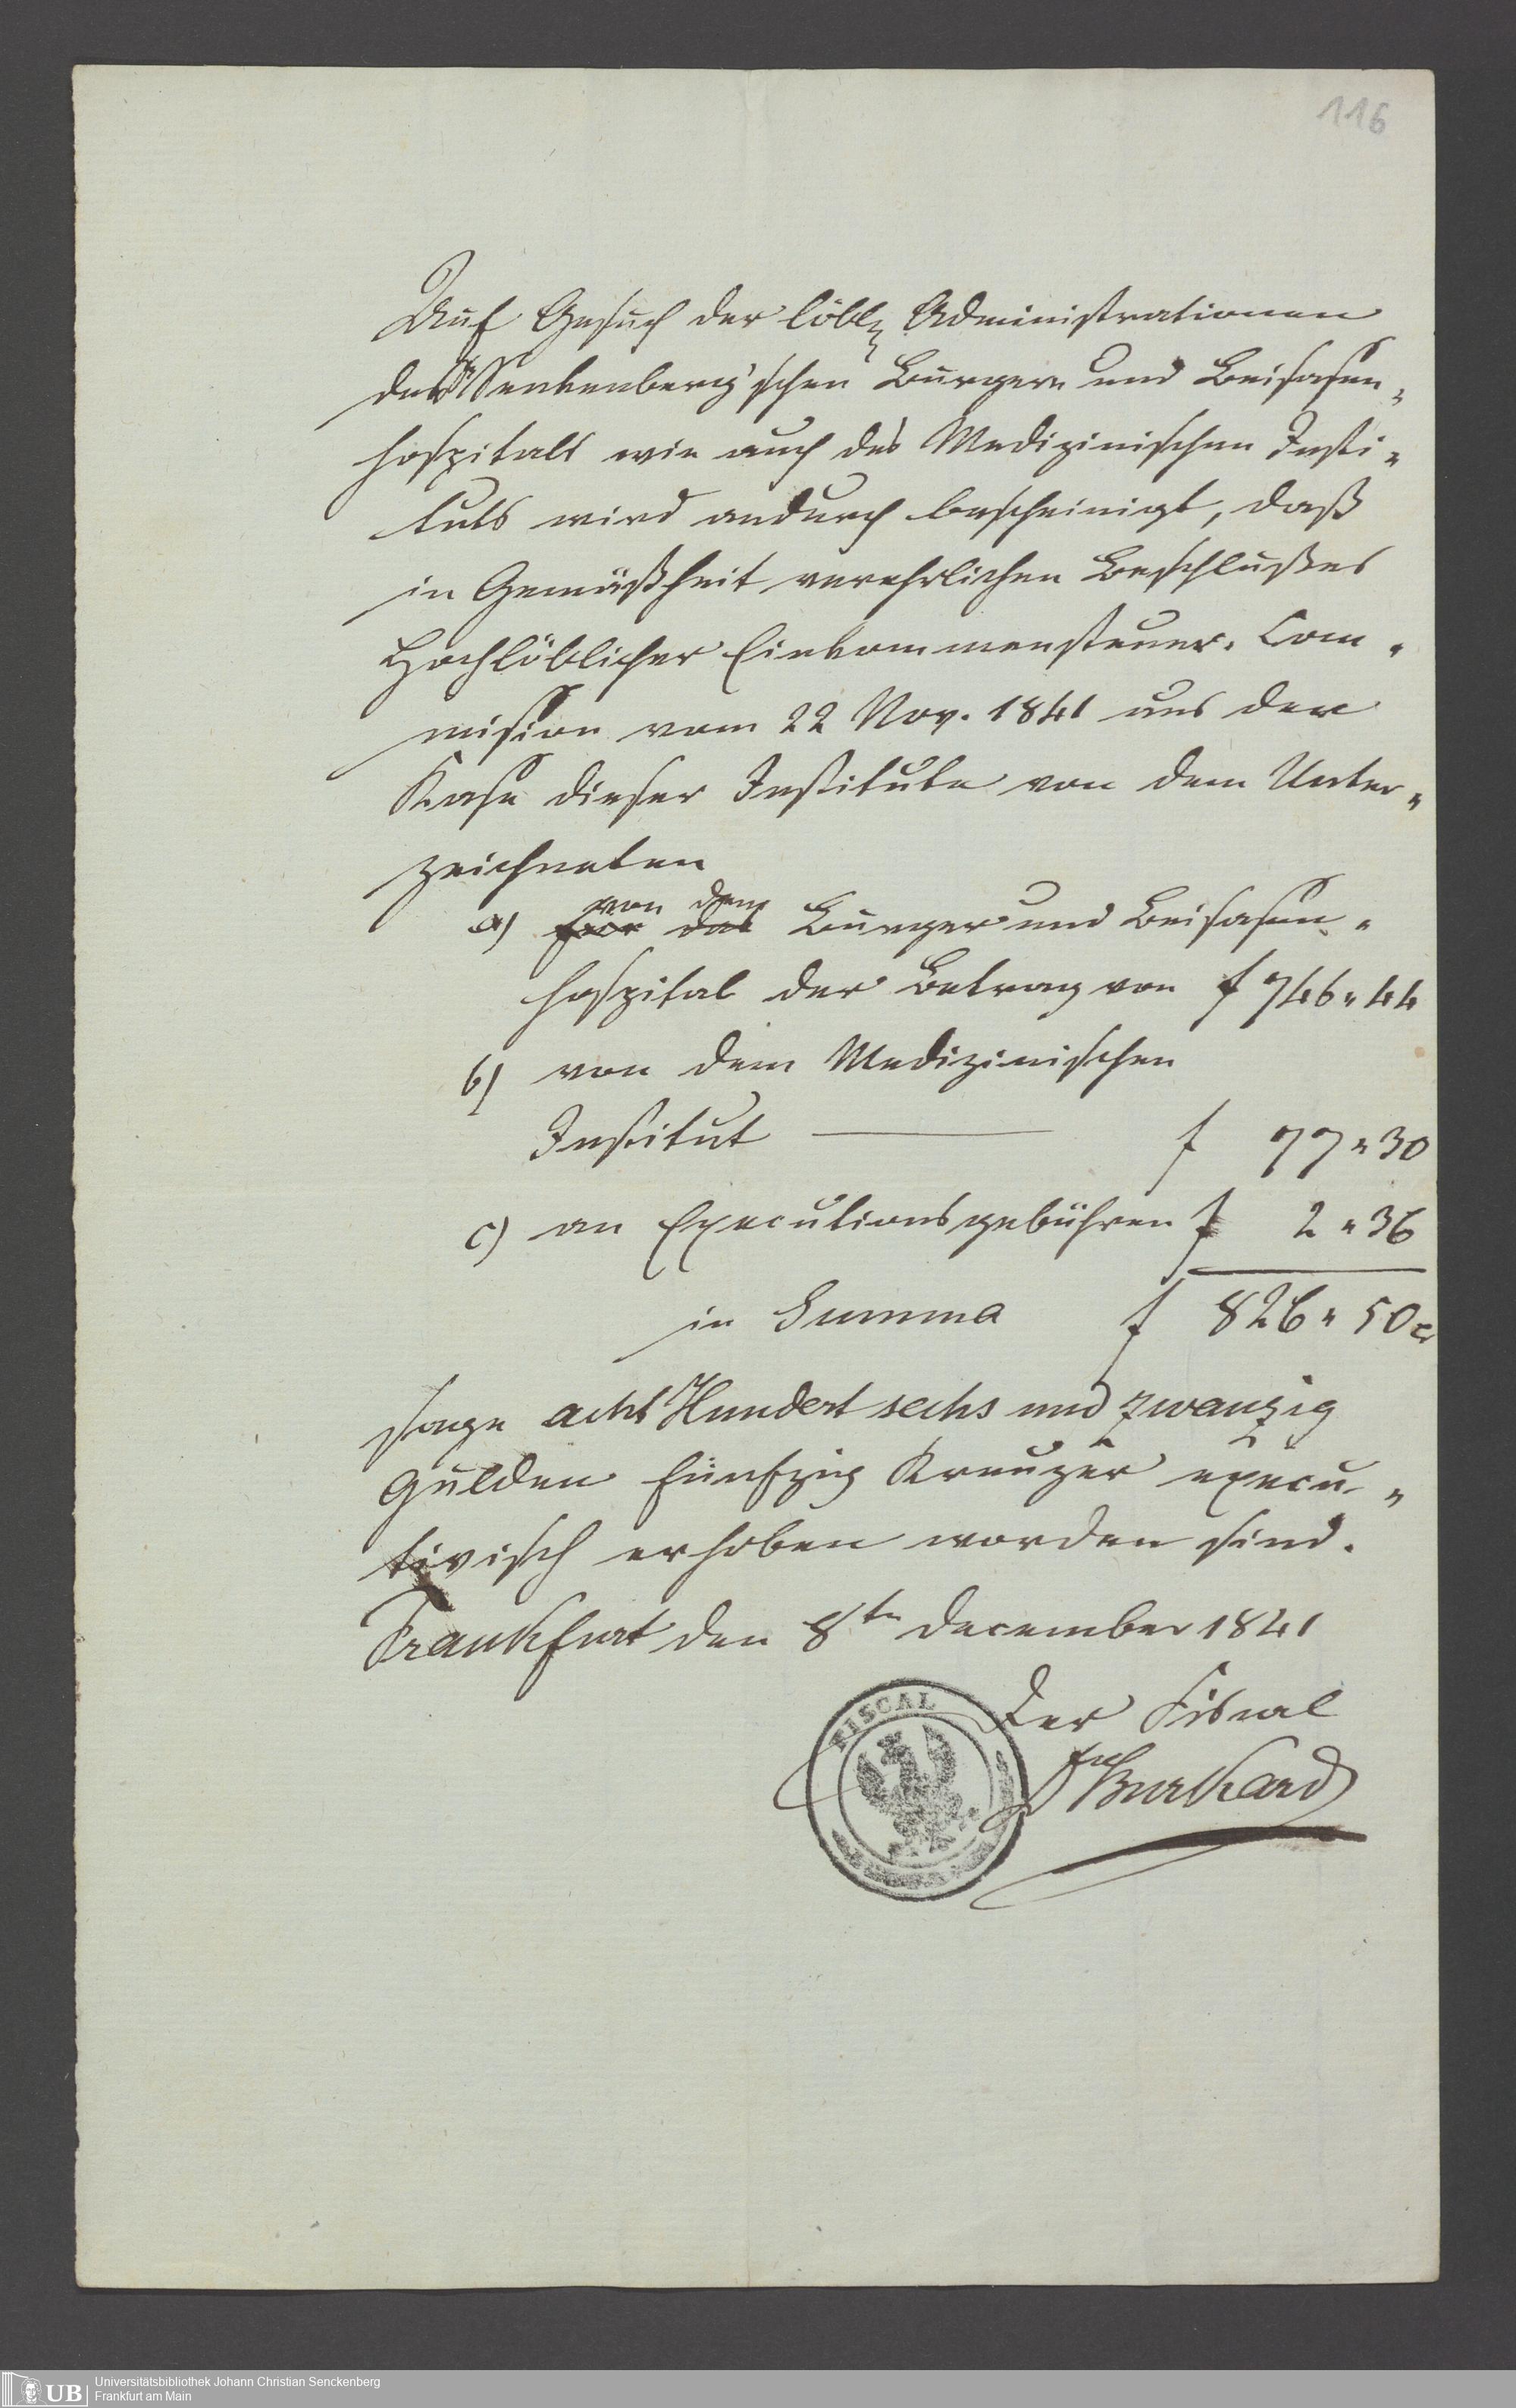 116
Auf Gesuch der löbl. Administrationen
des Dr Senkenberg'schen Bürger und Beisasen-
hospitals wie auch des Medizinischen Insti-
tuts wird andurch bescheinigt, daß
in Gemäßheit verehrlichen Beschlußes
Hochlöblicher Einkommensteuer-Com-
mission vom 22 Nov. 1841 aus der
Kasse dieser Institute von dem Unter-
zeichneten
von dem
a) für das Bürger und Beisasen-
hospital der Betrag von f 746 " 44
b) von dem Medizinischen
Institut — f 77 " 30
c) an Executionsgebühren f 2 " 36
in Summa f 826 " 50 x
sage acht Hundert sechs und zwanzig
Gulden fünfzig Kreuzer execu-
tivisch erhoben worden sind.
Frankfurt den 8ten December 1841
FISCAL
Der Fiskal
Dr Burkard
UB
Universitätsbibliothek Johann Christian Senckenberg
Frankfurt am Main